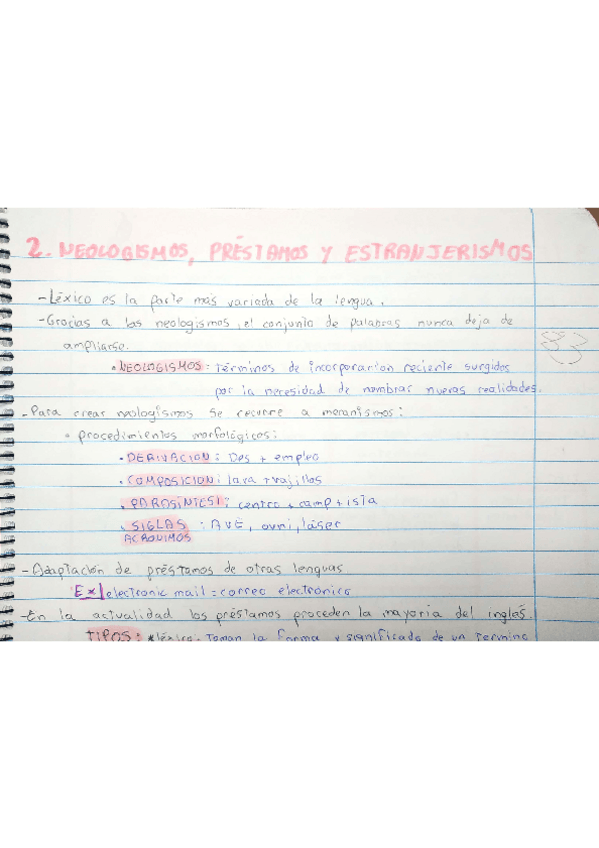 2. NEOLOGISMOS, PRÉSTAMOS Y ESTRANJERISMOS
-Léxico es la parte más variada de la lengua.
-Gracias a los neologismos, el conjunto de palabras nunca deja de
ampliarse.
•NEOLOGISMOS: términos de incorporacion reciente surgidos
por la necesidad de nombrar nuevas realidades.
-Para crear neologismos se recurre a mecanismos:
• procedimientos morfológicos:
• DERIVACION: Des + empleo
• COMPOSICION: lava + vajillas
• PARASINTESI: centro + camp + ista
• SIGLAS : AVE, ovni, láser
ACRONIMOS
-Adaptación de préstamos de otras lenguas
Ex| electronic mail = correo electrónico
-En la actualidad los préstamos proceden la mayoria del inglés.
TIPOS: *léxico. Toman la forma y significado de un término